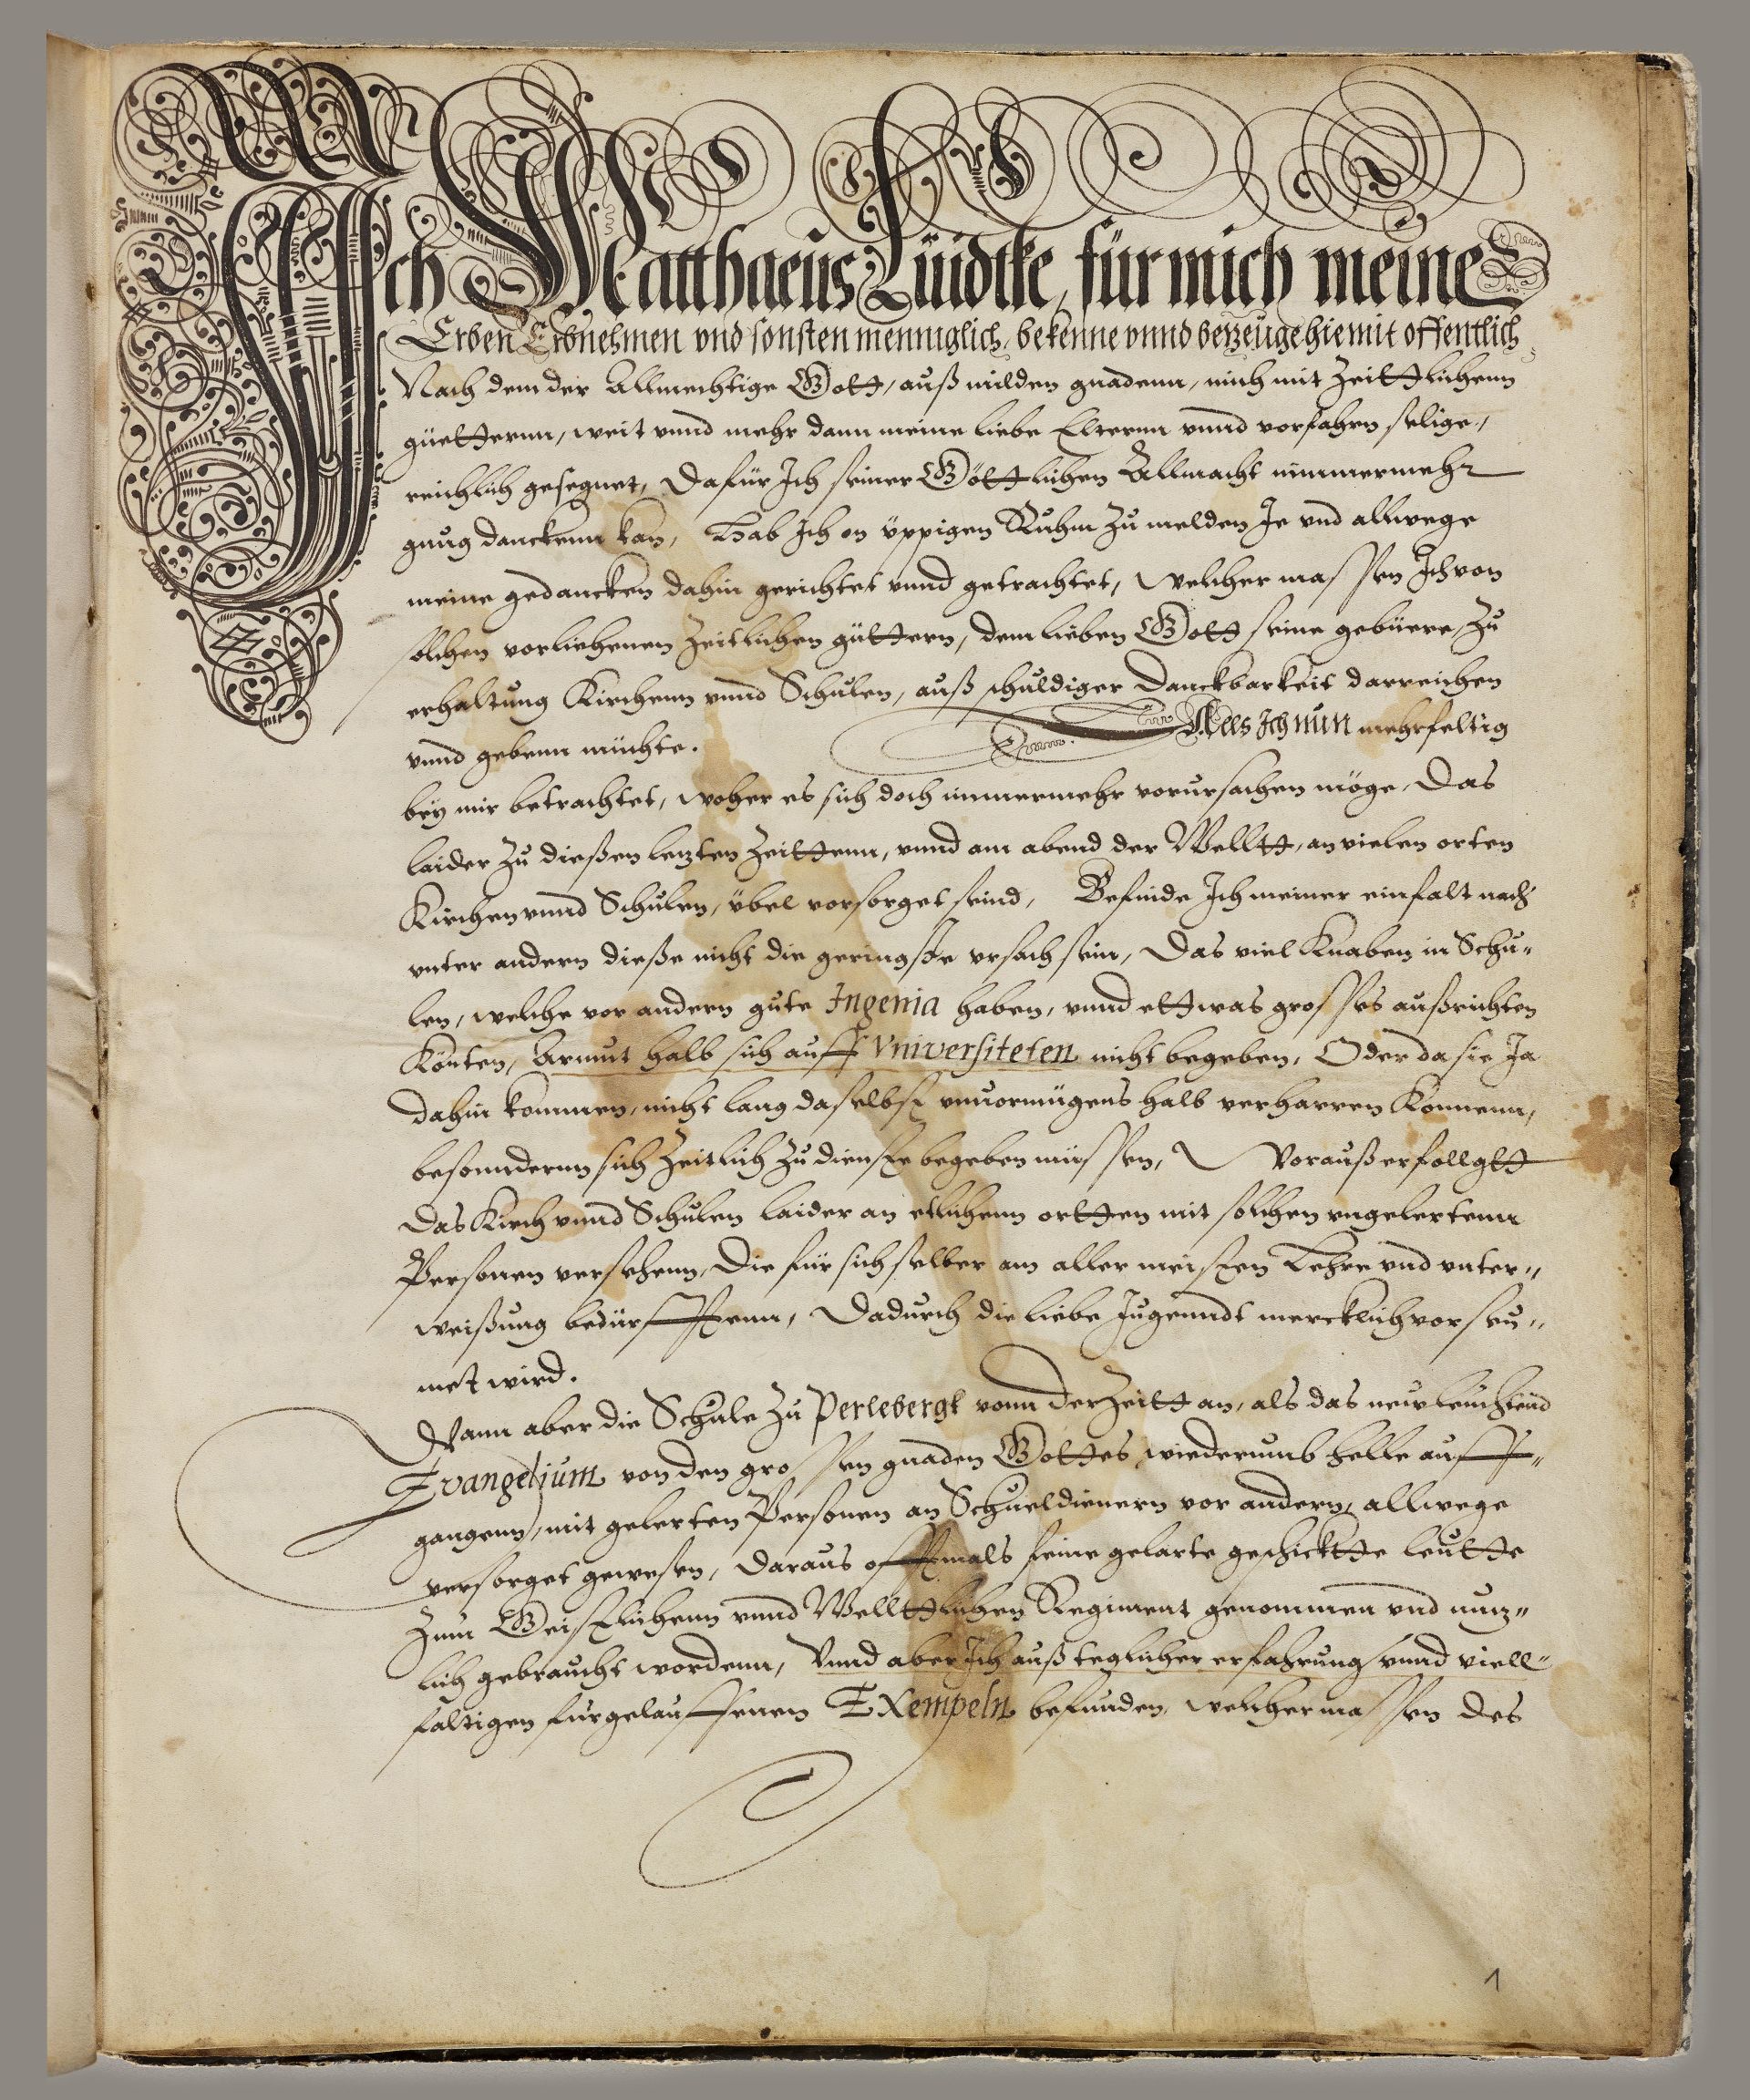 Ich Matthaeus Lüidtke, für mich meine
Erben Erbnehmen vnd sonsten menniglich, bekenne vnnd bezeuge hiemit offentlich
Nach dem der Allmechtige Gott, auß milden gnadenn, mich mit Zeittlichenn
güetternn, weit vnnd mehr dann meine liebe Elternn vnnd vorfahren selige,
reichlich gesegnet, Dafür Ich seiner Göttlichen Allmacht nimmermehr
gnug danckenn kan, Hab Ich on üppigen Ruhm zu melden Je vnd allwege
meine gedancken dahin gerichtet vnnd getrachtet, welcher massen Ich von
solchen vorliehenen Zeitlichen güttern, dem lieben Gott seine gebüere, Zu
erhaltung Kirchenn vnnd Schulen, auß schuldiger Danckbarkeit darreichen
vnnd gebenn müchte. Alls Ich nun mehrfeltig
bey mir betrachtet, woher es sich doch immermehr vorursachen möge, Das
laider Zu dießen lezten Zeittenn, vnnd am abend der Welltt, an vielen orten
Kirchen vnnd Schulen, übel vorsorget seind, Befinde Ich meiner einfalt nach
vnter andern dieße nicht die geringste vrsach sein, Das viel Knaben in Schu-
len, welche vor andern gute Ingenia haben, vnnd ettwas grosses außrichten
Könten, Armut halb sich auff Vniversiteten nicht begeben, Oder da sie Ja
dahin kommen, nicht lang daselbst vnuormügens halb verharren Konnenn,
besonndernn sich Zeitlich Zu dienste begeben müssen, Woraus erfollgtt
Das Kirch vnnd Schulen laider an etlichenn ortten mit solchen vngelertenn
Personen versehenn, Die für sich selber am aller meisten Lehre vnd vnter-
weißung bedürfftenn, Dadurch die liebe Jugenndt mercklich vorseu-
met wird.
Wann aber die Schule Zu Perlebergk vonn der Zeitt an, als das new leuchtend
Evangelium von den grossen gnaden Gottes wiederumb helle auff-
gangenn, mit gelerten Personen an Schueldienern vor andern, allwege
versorget gewesen, Daraus offtmals feine gelarte geschicktte leutte
Zum Geistlichenn vnnd Welltlichen Regiment genommen vnd nuz-
lich gebraucht wordenn, Vnnd aber Ich auß teglicher erfahrung vnnd viell-
faltigen fürgelauffenen Exempeln befunden, welcher massen des
1